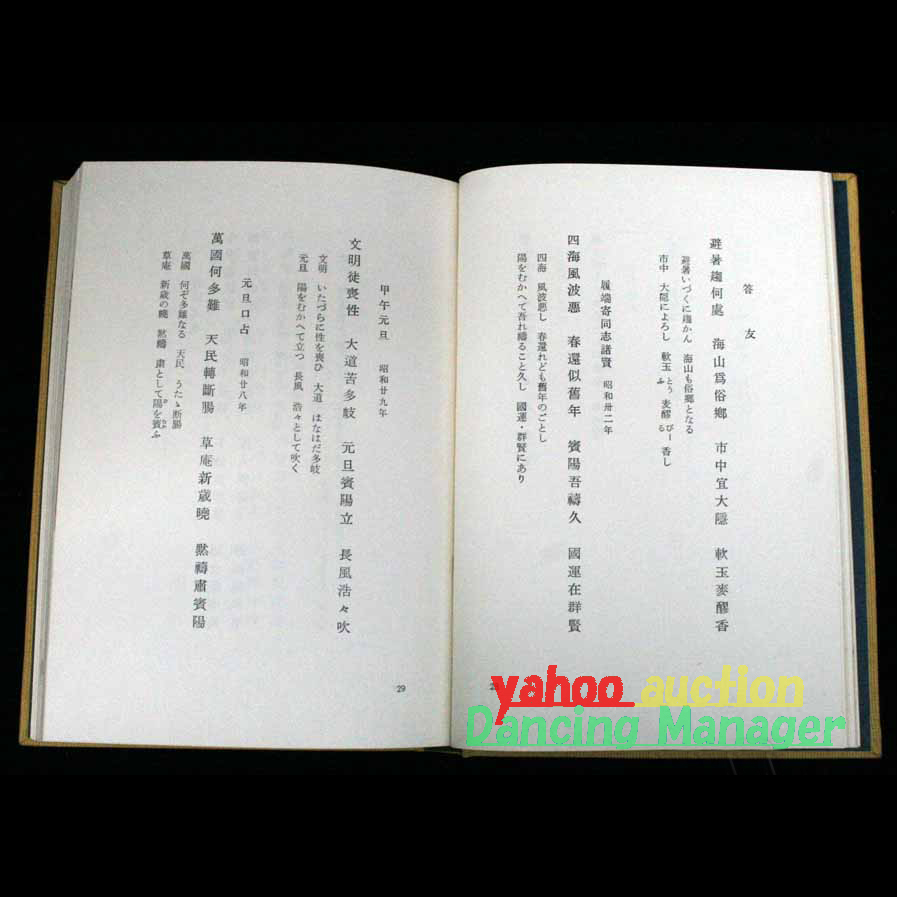 答友
避暑趨何處　海山爲俗鄉　市中宜大隱　軟玉麥醪香
避暑いづくに趨かん　海山も俗鄉となる
市中　大隱によろし　軟玉 とうふ 麥醪 びーる 香し
履端寄同志諸賢　昭和卅二年
四海風波惡　春還似舊年　賓陽吾禱久　國運在群賢
四海　風波惡し　春還れども舊年のごとし
陽をむかへて吾れ禱ること久し　國運・群賢にあり
28
甲午元旦　昭和廿九年
文明徒喪性　大道苦多岐　元旦賓陽立　長風浩々吹
文明　いたづらに性を喪ひ　大道　はなはだ多岐
元旦　陽をむかへて立つ　長風　浩々として吹く
元旦口占　昭和廿八年
萬國何多難　天民轉斷腸　草庵新歲曉　默禱肅賓陽
萬國　何ぞ多難なる　天民　うたゝ断腸
草庵　新歲の曉　默禱　肅として陽を賓ふ
29
yahoo auction
Dancing Manager